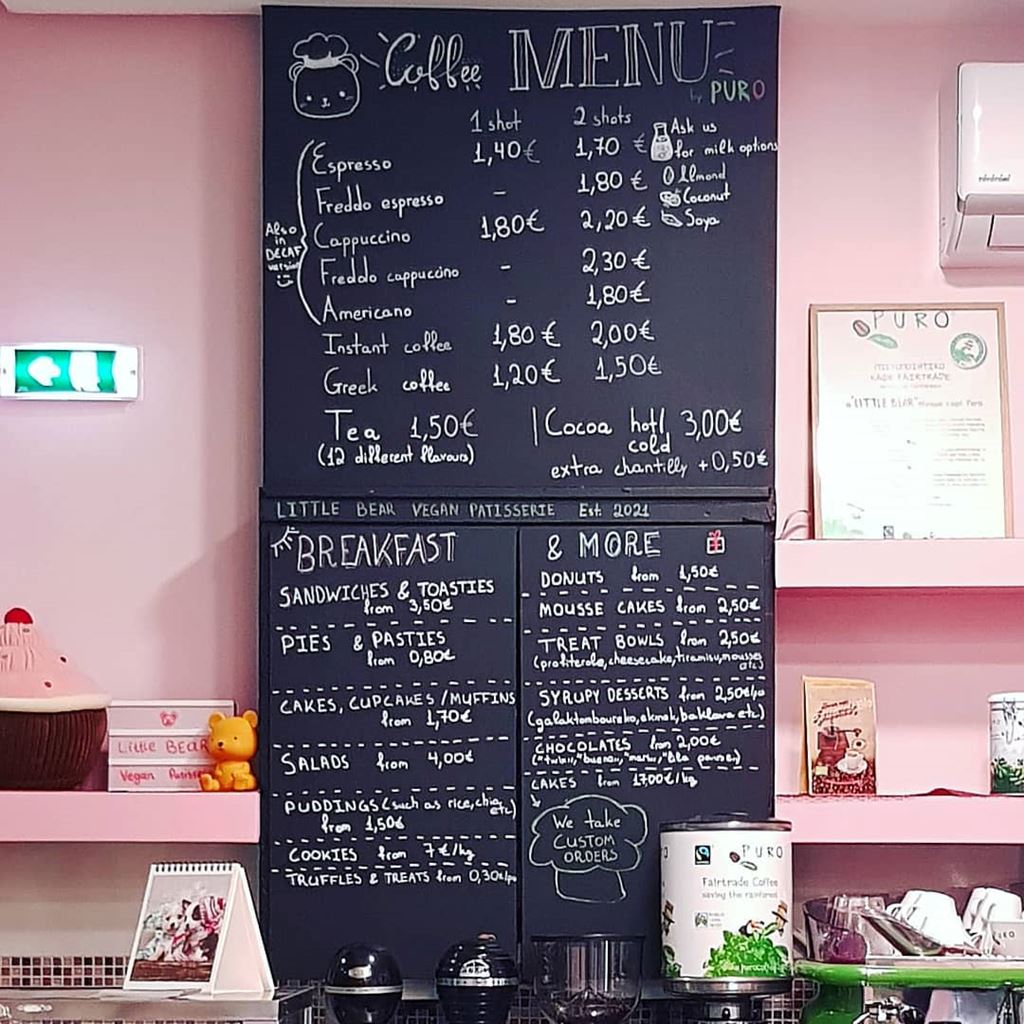 Coffee MENU
by PURO
1 shot 2 shots
Espresso 1,40€ 1,70€
Freddo espresso - 1,80€
Cappuccino 1,80€ 2,20€
Freddo cappuccino - 2,30€
Americano - 1,80€
Also in DECAF version
Ask us
for milk options
Almond
Coconut
Soya
Instant coffee 1,80€ 2,00€
Greek coffee 1,20€ 1,50€
Tea 1,50€
(12 different flavours)
Cocoa hot/ 3,00€
cold
extra chantilly +0,50€
LITTLE BEAR VEGAN PATISSERIE Est. 2021
BREAKFAST
SANDWICHES & TOASTIES
from 3,50€
PIES & PASTIES
from 0,80€
CAKES, CUPCAKES/MUFFINS
from 1,70€
SALADS from 4,00€
PUDDINGS (such as rice, chia, etc)
from 1,50€
COOKIES from 7€/kg
TRUFFLES & TREATS from 0,30€/
& MORE
DONUTS from 1,50€
MOUSSE CAKES from 2,50€
TREAT BOWLS from 2,50€
(profiterole, cheesecake, tiramisu, mousses etc)
SYRUPY DESSERTS from 2,50€/
(galaktomboureko, ekmek, baklava etc)
CHOCOLATES from 2,00€
CAKES from 17,00€/kg
We take
CUSTOM
ORDERS
PURO
ΚΑΦΕ FAIRTRADE
"LITTLE BEAR"
LITTLE BEAR
Vegan
PURO
Fairtrade Coffee
saving the rainforest
PURO